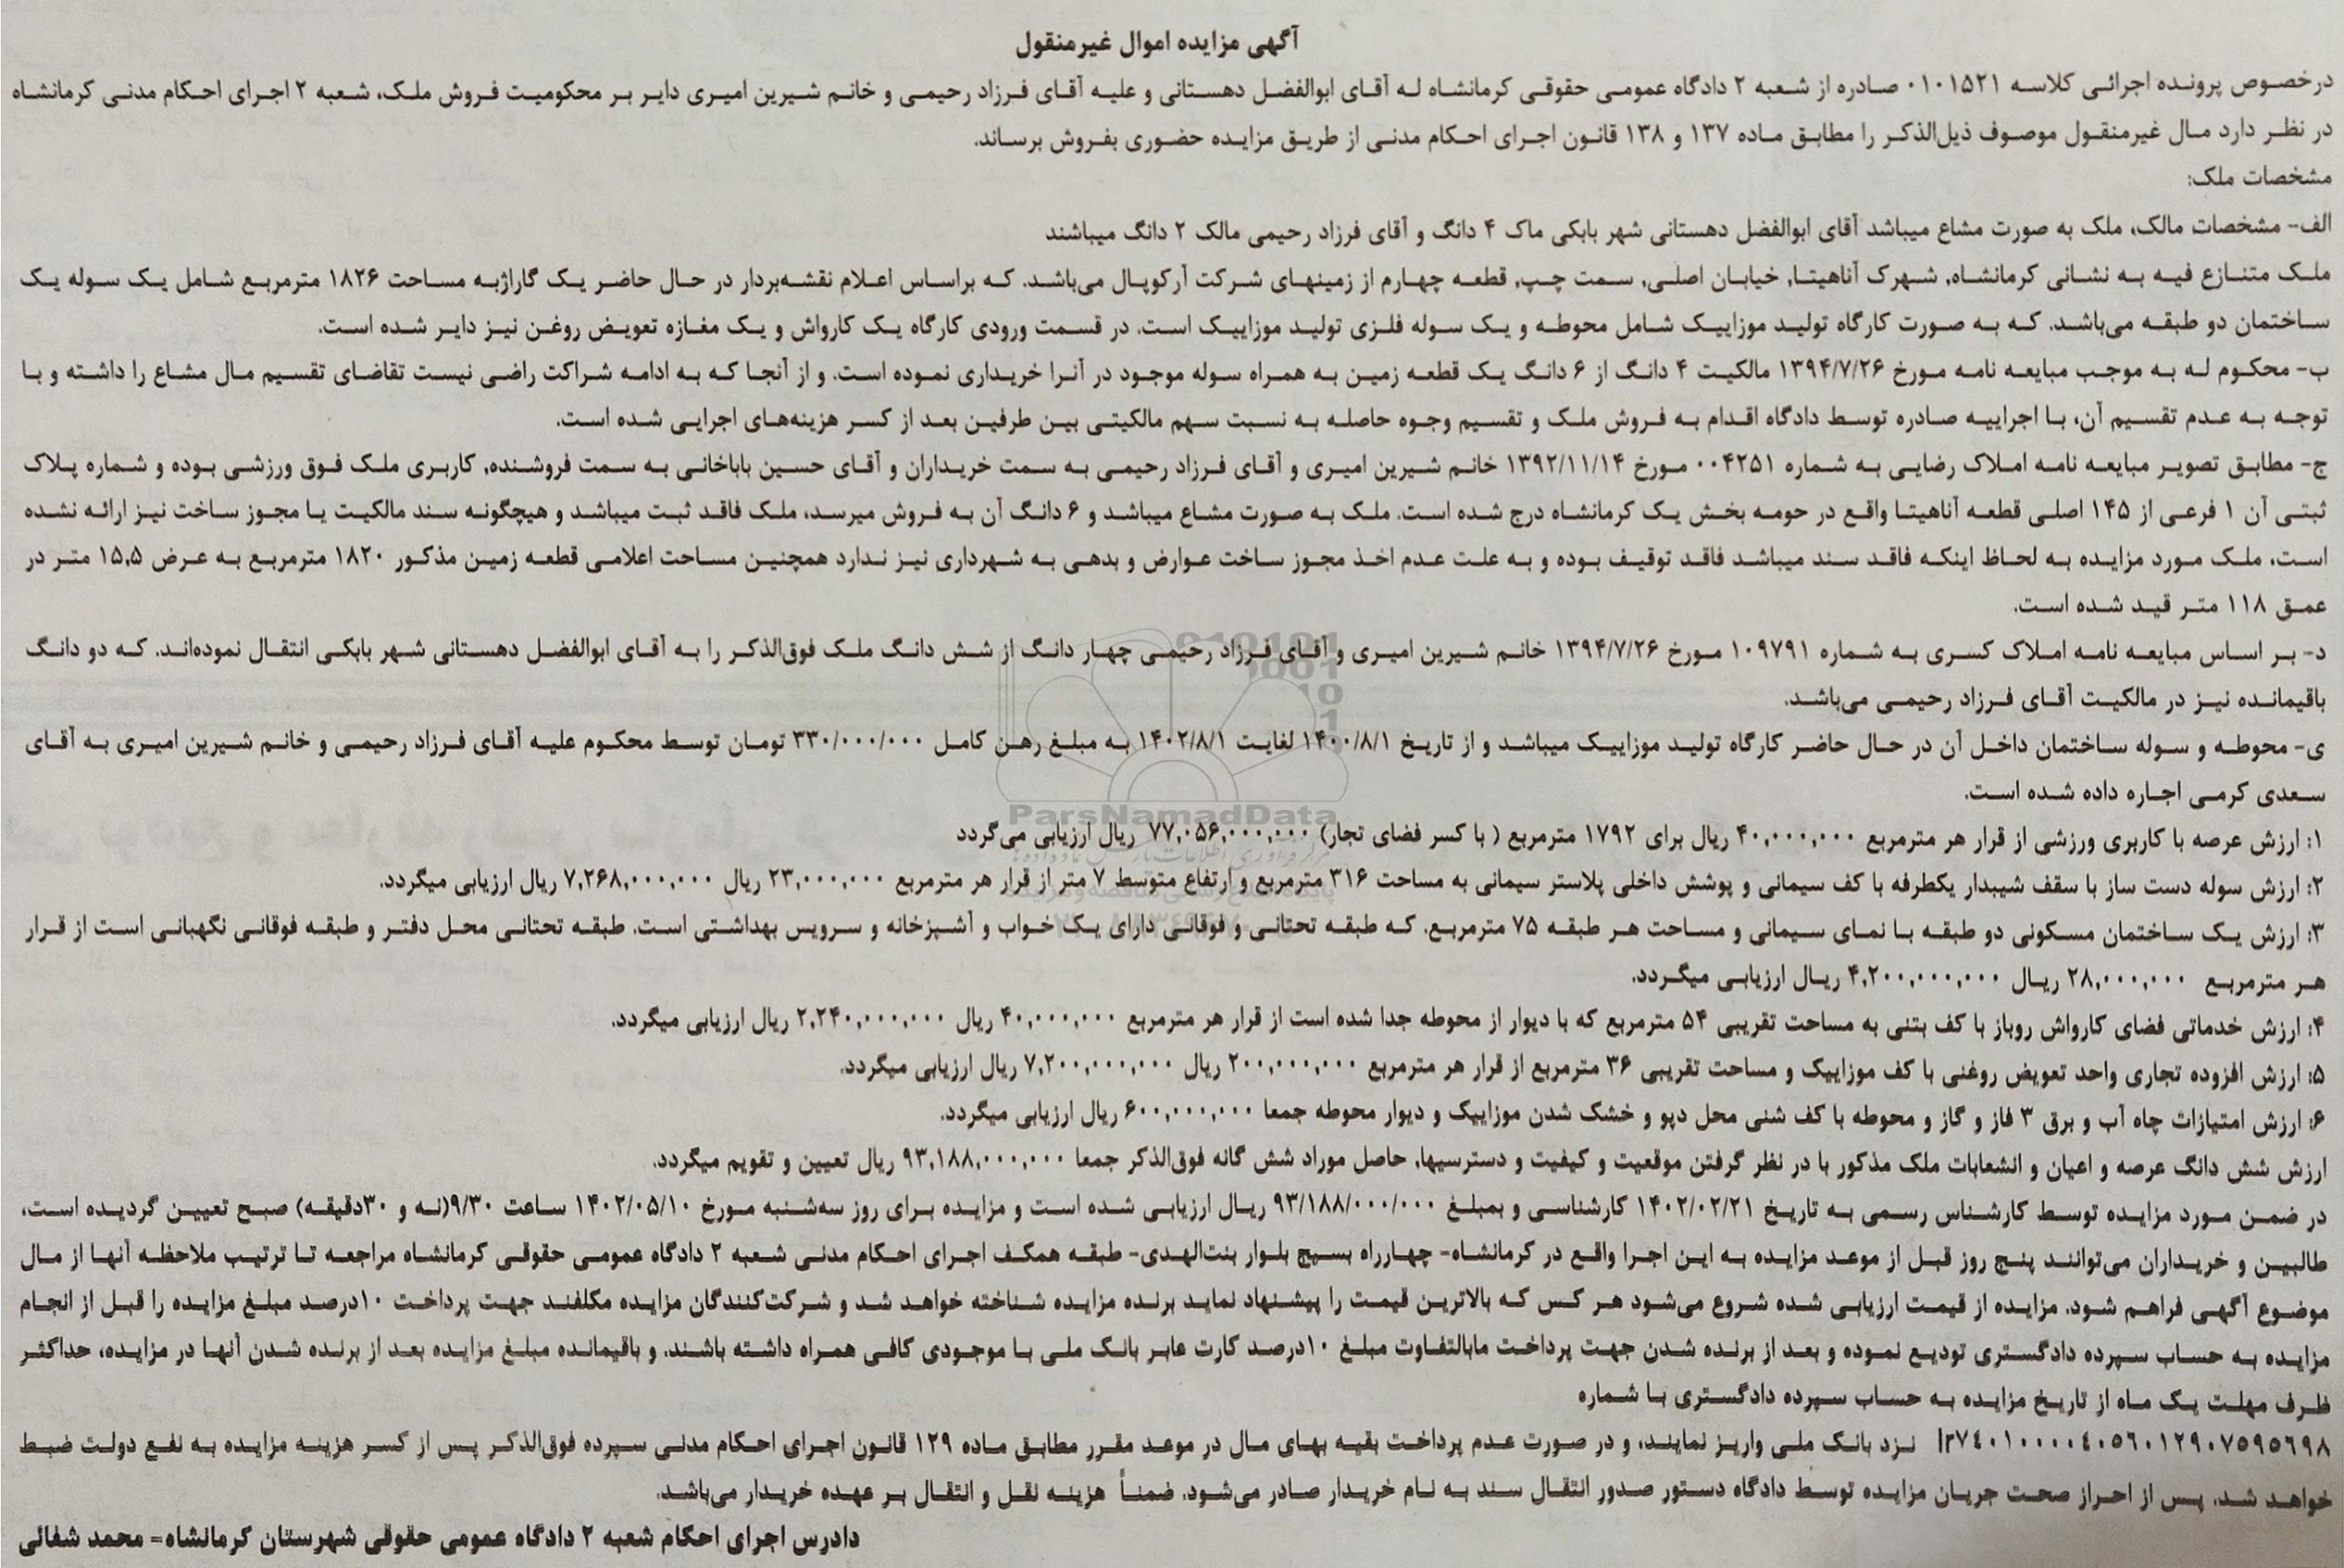 آگهی مزایده اموال غیرمنقول
درخصوص پرونده اجرائی کلاسه ۰۱۰۱۵۲۱ صادره از شعبه ۲ دادگاه عمومی حقوقی کرمانشاه له آقای ابوالفضل دهستانی و علیه آقای فرزاد رحیمی و خانم شیرین امیری دایر بر محکومیت فروش ملک، شعبه ۲ اجرای احکام مدنی کرمانشاه
در نظر دارد مال غیرمنقول موصوف ذیل‌الذکر را مطابق ماده ۱۳۷ و ۱۳۸ قانون اجرای احکام مدنی از طریق مزایده حضوری بفروش برساند.
مشخصات ملک:
الف- مشخصات مالک، ملک به صورت مشاع میباشد آقای ابوالفضل دهستانی شهر بابکی ماک ۴ دانگ و آقای فرزاد رحیمی مالک ۲ دانگ میباشند
ملک متنازع فیه به نشانی کرمانشاه, شهرک آناهیتا, خیابان اصلی, سمت چپ, قطعه چهارم از زمینهای شرکت آرکوپال می‌باشد. که براساس اعلام نقشه‌بردار در حال حاضر یک گاراژبه مساحت ۱۸۲۶ مترمربع شامل یک سوله یک
ساختمان دو طبقه می‌باشد. که به صورت کارگاه تولید موزاییک شامل محوطه و یک سوله فلزی تولید موزاییک است. در قسمت ورودی کارگاه یک کارواش و یک مغازه تعویض روغن نیز دایر شده است.
ب- محکوم له به موجب مبایعه نامه مورخ ۱۳۹۴/۷/۲۶ مالکیت ۴ دانگ از ۶ دانگ یک قطعه زمین به همراه سوله موجود در آنرا خریداری نموده است. و از آنجا که به ادامه شراکت راضی نیست تقاضای تقسیم مال مشاع را داشته و با
توجه به عدم تقسیم آن، با اجراییه صادره توسط دادگاه اقدام به فروش ملک و تقسیم وجوه حاصله به نسبت سهم مالکیتی بین طرفین بعد از کسر هزینه‌های اجرایی شده است.
ج- مطابق تصویر مبایعه نامه املاک رضایی به شماره ۰۰۴۲۵۱ مورخ ۱۳۹۲/۱۱/۱۴ خانم شیرین امیری و آقای فرزاد رحیمی به سمت خریداران و آقای حسین باباخانی به سمت فروشنده, کاربری ملک فوق ورزشی بوده و شماره پلاک
ثبتی آن ۱ فرعی از ۱۴۵ اصلی قطعه آناهیتا واقع در حومه بخش یک کرمانشاه درج شده است. ملک به صورت مشاع میباشد و ۶ دانگ آن به فروش میرسد، ملک فاقد ثبت میباشد و هیچگونه سند مالکیت یا مجوز ساخت نیز ارائه نشده
است، ملک مورد مزایده به لحاظ اینکه فاقد سند میباشد فاقد توقیف بوده و به علت عدم اخذ مجوز ساخت عوارض و بدهی به شهرداری نیز ندارد همچنین مساحت اعلامی قطعه زمین مذکور ۱۸۲۰ مترمربع به عرض ۱۵,۵ متر در
عمق ۱۱۸ متر قید شده است.
د- بر اساس مبایعه نامه املاک کسری به شماره ۱۰۹۷۹۱ مورخ ۱۳۹۴/۷/۲۶ خانم شیرین امیری و آقای فرزاد رحیمی چهار دانگ از شش دانگ ملک فوق‌الذکر را به آقای ابوالفضل دهستانی شهر بابکی انتقال نموده‌اند. که دو دانگ
باقیمانده نیز در مالکیت آقای فرزاد رحیمی می‌باشد.
ی- محوطه و سوله ساختمان داخل آن در حال حاضر کارگاه تولید موزاییک میباشد و از تاریخ ۱۴۰۰/۸/۱ لغایت ۱۴۰۲/۸/۱ به مبلغ رهن کامل ۳۳۰/۰۰۰/۰۰۰ تومان توسط محکوم علیه آقای فرزاد رحیمی و خانم شیرین امیری به آقای
سعدی کرمی اجاره داده شده است.
ParsNamadData
۱: ارزش عرصه با کاربری ورزشی از قرار هر مترمربع ۴۰,۰۰۰,۰۰۰ ریال برای ۱۷۹۲ مترمربع ( با کسر فضای تجار) ۷۷,۰۵۶,۰۰۰,۰۰۰ ریال ارزیابی می‌گردد
۲: ارزش سوله دست ساز با سقف شیبدار یکطرفه با کف سیمانی و پوشش داخلی پلاستر سیمانی به مساحت ۳۱۶ مترمربع و ارتفاع متوسط ۷ متر از قرار هر مترمربع ۲۳,۰۰۰,۰۰۰ ریال ۷,۲۶۸,۰۰۰,۰۰۰ ریال ارزیابی میگردد.
۳: ارزش یک ساختمان مسکونی دو طبقه با نمای سیمانی و مساحت هر طبقه ۷۵ مترمربع. که طبقه تحتانی و فوقانی دارای یک خواب و آشپزخانه و سرویس بهداشتی است. طبقه تحتانی محل دفتر و طبقه فوقانی نگهبانی است از قرار
هر مترمربع ۲۸,۰۰۰,۰۰۰ ریال ۴,۲۰۰,۰۰۰,۰۰۰ ریال ارزیابی میگردد.
۴: ارزش خدماتی فضای کارواش روباز با کف بتنی به مساحت تقریبی ۵۴ مترمربع که با دیوار از محوطه جدا شده است از قرار هر مترمربع ۴۰,۰۰۰,۰۰۰ ریال ۲,۲۴۰,۰۰۰,۰۰۰ ریال ارزیابی میگردد.
۵: ارزش افزوده تجاری واحد تعویض روغنی با کف موزاییک و مساحت تقریبی ۳۶ مترمربع از قرار هر مترمربع ۲۰۰,۰۰۰,۰۰۰ ریال ۷,۲۰۰,۰۰۰,۰۰۰ ریال ارزیابی میگردد.
۶: ارزش امتیازات چاه آب و برق ۳ فاز و گاز و محوطه با کف شنی محل دپو و خشک شدن موزاییک و دیوار محوطه جمعا ۶۰۰,۰۰۰,۰۰۰ ریال ارزیابی میگردد.
ارزش شش دانگ عرصه و اعیان و انشعابات ملک مذکور با در نظر گرفتن موقعیت و کیفیت و دسترسیها, حاصل موراد شش گانه فوق‌الذکر جمعا ۹۳,۱۸۸,۰۰۰,۰۰۰ ریال تعیین و تقویم میگردد.
در ضمن مورد مزایده توسط کارشناس رسمی به تاریخ ۱۴۰۲/۰۲/۲۱ کارشناسی و بمبلغ ۹۳/۱۸۸/۰۰۰/۰۰۰ ریال ارزیابی شده است و مزایده برای روز سه‌شنبه مورخ ۱۴۰۲/۰۵/۱۰ ساعت ۹/۳۰(نه و ۳۰دقیقه) صبح تعیین گردیده است،
طالبین و خریداران می‌توانند پنج روز قبل از موعد مزایده به این اجرا واقع در کرمانشاه- چهارراه بسیج بلوار بنت‌الهدی- طبقه همکف اجرای احکام مدنی شعبه ۲ دادگاه عمومی حقوقی کرمانشاه مراجعه تا ترتیب ملاحظه آنها از مال
موضوع آگهی فراهم شود. مزایده از قیمت ارزیابی شده شروع می‌شود هر کس که بالاترین قیمت را پیشنهاد نماید برنده مزایده شناخته خواهد شد و شرکت‌کنندگان مزایده مکلفند جهت پرداخت ۱۰درصد مبلغ مزایده را قبل از انجام
مزایده به حساب سپرده دادگستری تودیع نموده و بعد از برنده شدن جهت پرداخت مابالتفاوت مبلغ ۱۰درصد کارت عابر بانک ملی با موجودی کافی همراه داشته باشند. و باقیمانده مبلغ مزایده بعد از برنده شدن آنها در مزایده، حداکثر
ظرف مهلت یک ماه از تاریخ مزایده به حساب سپرده دادگستری با شماره
Ir۷٤۰۱۰۰۰۰٤۰٥٦۰۱۲۹۰۷٥۹٥٦۹۸ نزد بانک ملی واریز نمایند، و در صورت عدم پرداخت بقیه بهای مال در موعد مقرر مطابق ماده ۱۲۹ قانون اجرای احکام مدنی سپرده فوق‌الذکر پس از کسر هزینه مزایده به نفع دولت ضبط
خواهد شد. پس از احراز صحت جریان مزایده توسط دادگاه دستور صدور انتقال سند به نام خریدار صادر می‌شود. ضمناً هزینه نقل و انتقال بر عهده خریدار می‌باشد.
دادرس اجرای احکام شعبه ۲ دادگاه عمومی حقوقی شهرستان کرمانشاه- محمد شفائی